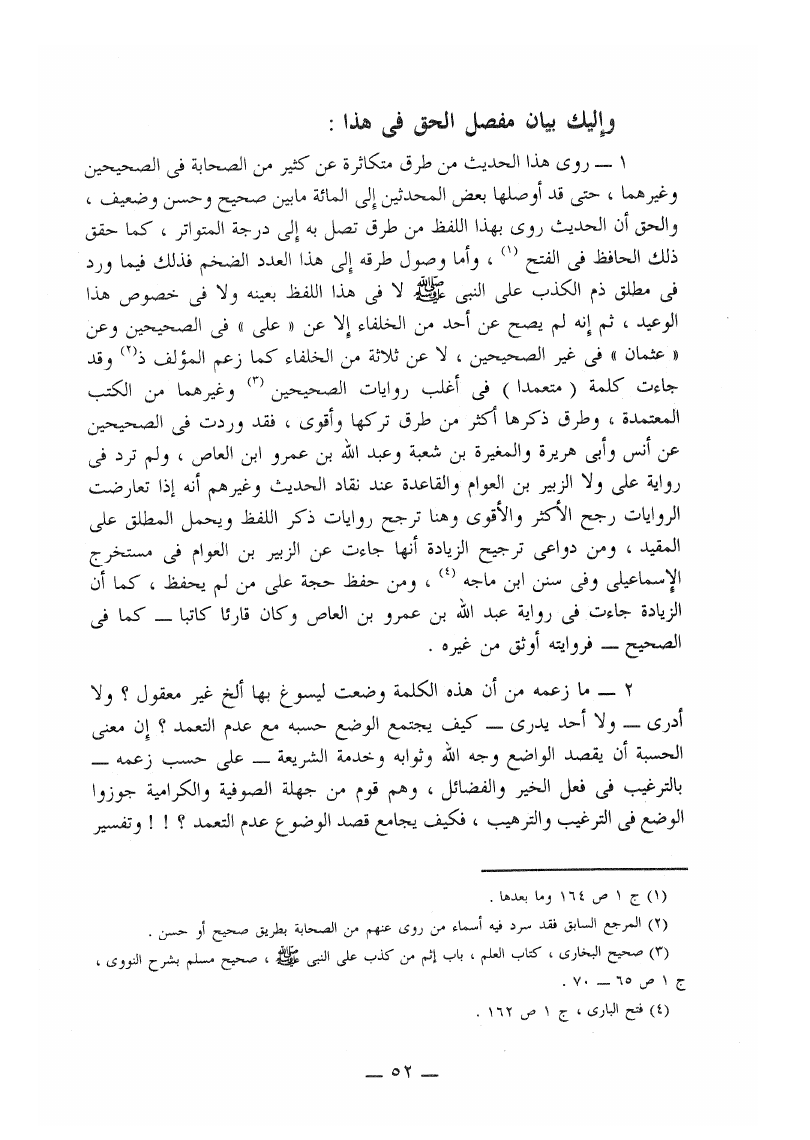 وإليك بيان مفصل الحق فى هذا :
١ — روى هذا الحديث من طرق متكاثرة عن كثير من الصحابة فى الصحيحين
وغيرهما ، حتى قد أوصلها بعض المحدثين إلى المائة مابين صحيح وحسن وضعيف ،
والحق أن الحديث روى بهذا اللفظ من طرق تصل به إلى درجة المتواتر ، كما حقق
ذلك الحافظ فى الفتح (١) ، وأما وصول طرقه إلى هذا العدد الضخم فذلك فيما ورد
فى مطلق ذم الكذب على النبى ﷺ لا فى هذا اللفظ بعينه ولا فى خصوص هذا
الوعيد ، ثم إنه لم يصح عن أحد من الخلفاء إلا عن « على » فى الصحيحين وعن
« عثمان » فى غير الصحيحين ، لا عن ثلاثة من الخلفاء كما زعم المؤلف ذ(٢) وقد
جاءت كلمة ( متعمدا ) فى أغلب روايات الصحيحين (٣) وغيرهما من الكتب
المعتمدة ، وطرق ذكرها أكثر من طرق تركها وأقوى ، فقد وردت فى الصحيحين
عن أنس وأبى هريرة والمغيرة بن شعبة وعبد الله بن عمرو ابن العاص ، ولم ترد فى
رواية على ولا الزبير بن العوام والقاعدة عند نقاد الحديث وغيرهم أنه إذا تعارضت
الروايات رجح الأكثر والأقوى وهنا ترجح روايات ذكر اللفظ ويحمل المطلق على
المقيد ، ومن دواعى ترجيح الزيادة أنها جاءت عن الزبير بن العوام فى مستخرج
الإسماعيلى وفى سنن ابن ماجه (٤) ، ومن حفظ حجة على من لم يحفظ ، كما أن
الزيادة جاءت فى رواية عبد الله بن عمرو بن العاص وكان قارئا كاتبا — كما فى
الصحيح — فروايته أوثق من غيره .
٢ — ما زعمه من أن هذه الكلمة وضعت ليسوغ بها ألخ غير معقول ؟ ولا
أدرى — ولا أحد يدرى — كيف يجتمع الوضع حسبه مع عدم التعمد ؟ إن معنى
الحسبة أن يقصد الواضع وجه الله وثوابه وخدمة الشريعة — على حسب زعمه —
بالترغيب فى فعل الخير والفضائل ، وهم قوم من جهلة الصوفية والكرامية جوزوا
الوضع فى الترغيب والترهيب ، فكيف يجامع قصد الوضوع عدم التعمد ؟ ! ! وتفسير
(١) ج ١ ص ١٦٤ وما بعدها .
(٢) المرجع السابق فقد سرد فيه أسماء من روى عنهم من الصحابة بطريق صحيح أو حسن .
(٣) صحيح البخارى ، كتاب العلم ، باب إثم من كذب على النبى ﷺ ، صحيح مسلم بشرح النووى ،
ج ١ ص ٦٥ — ٧٠ .
(٤) فتح البارى ، ج ١ ص ١٦٢ .
— ٥٢ —